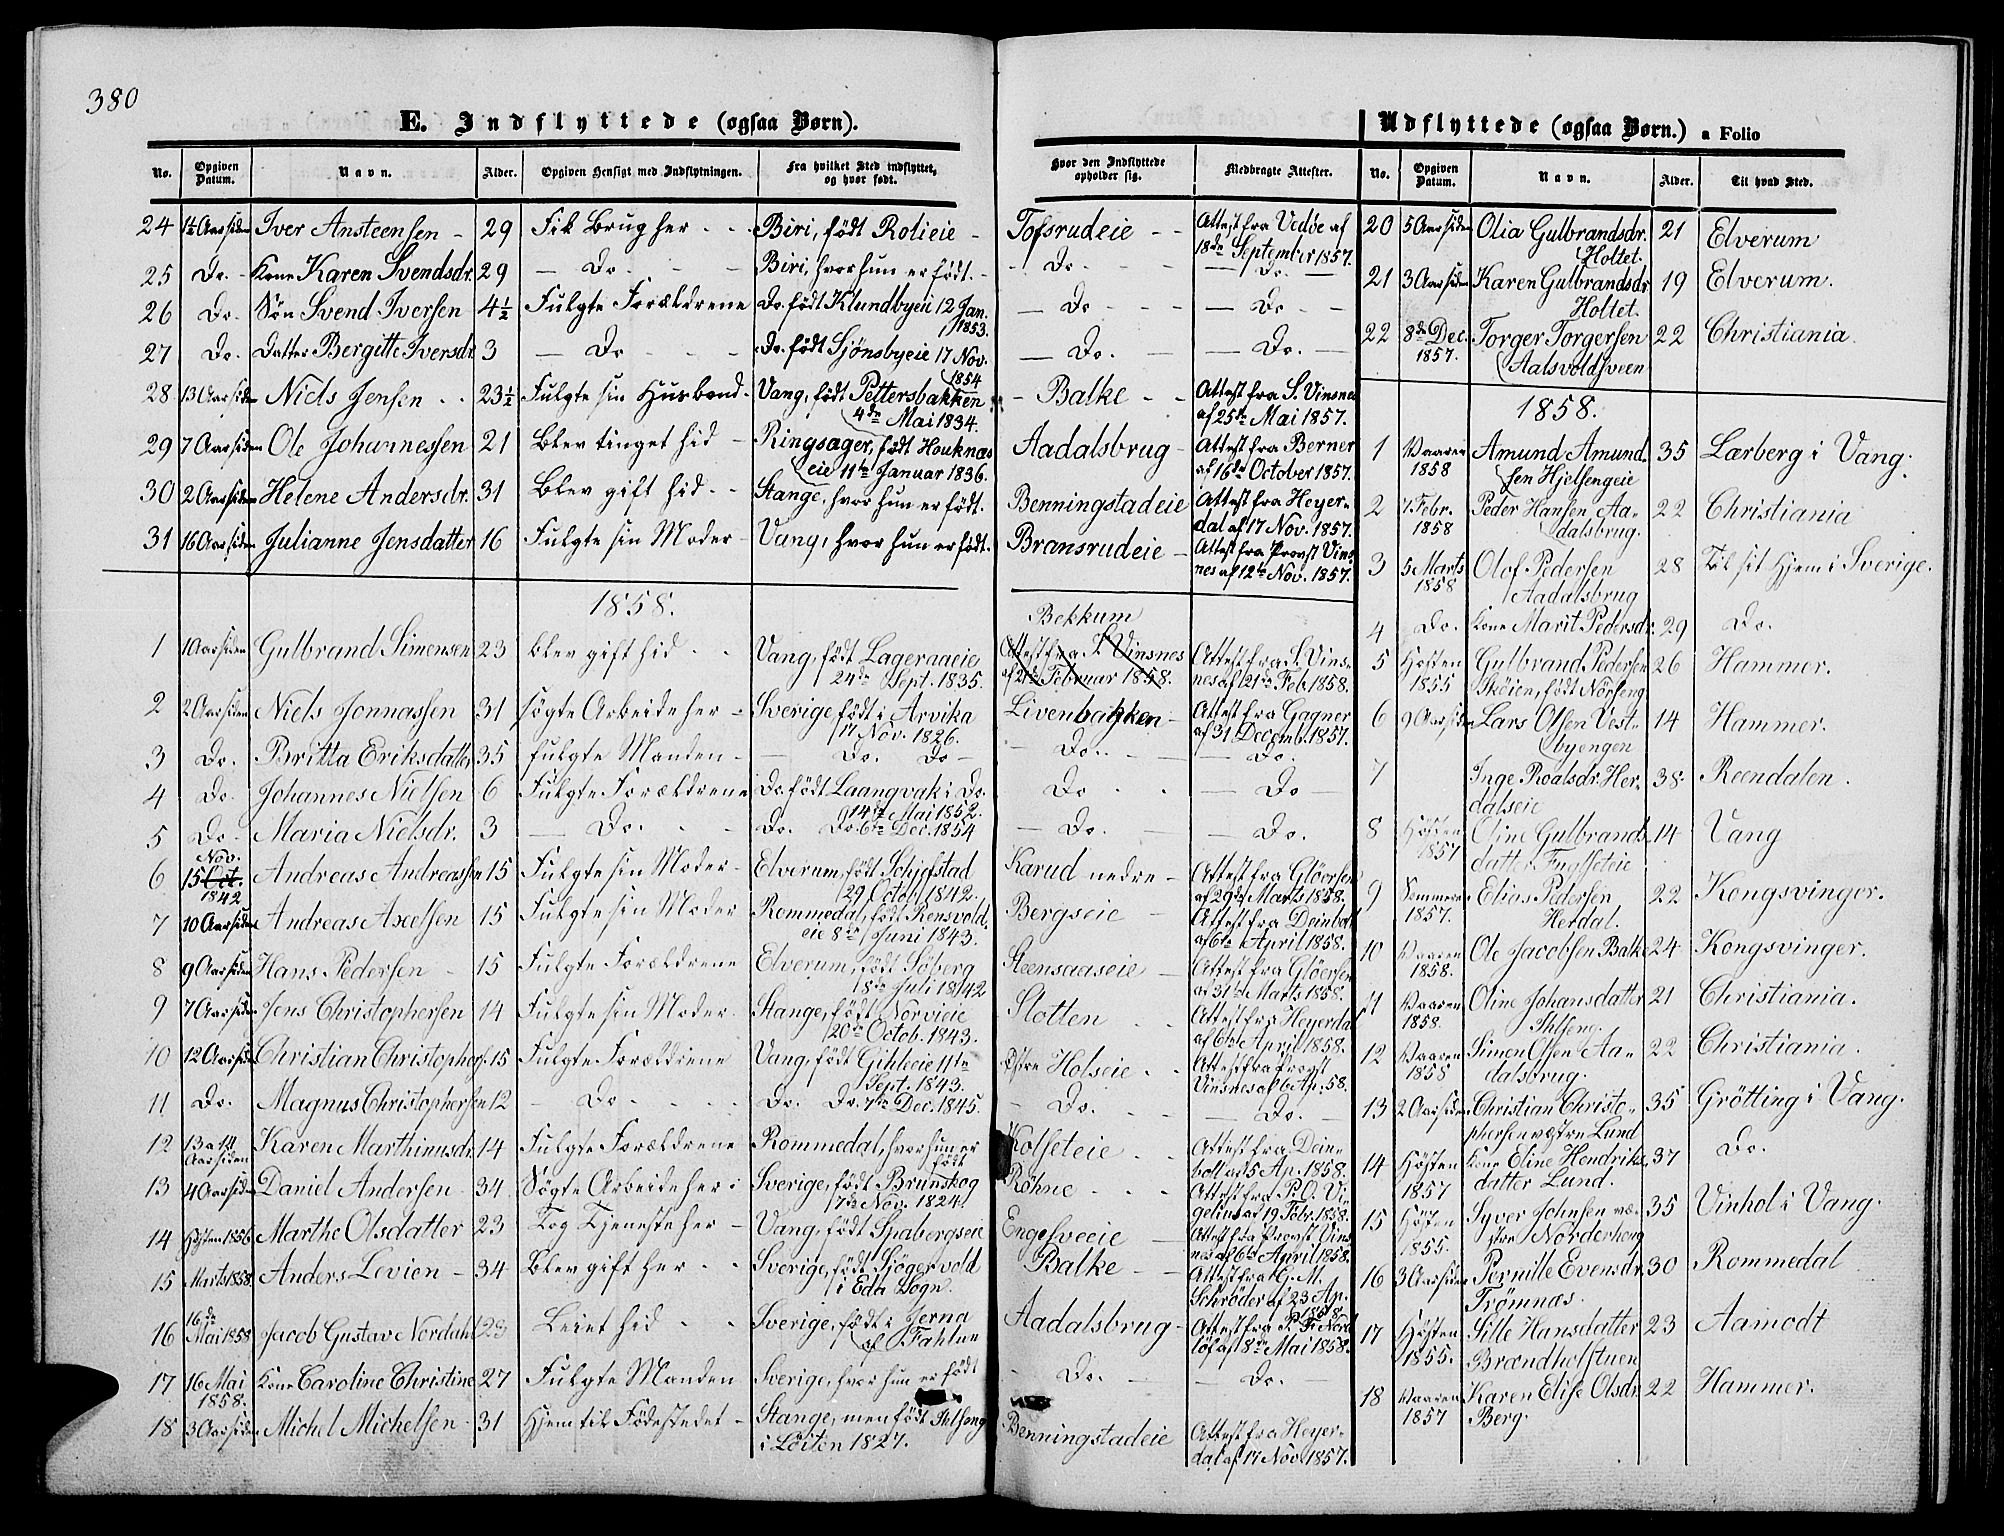 380
E. Indflyttede (ogsaa Børn).
No. Opgiven Datum. Navn. Alder. Opgiven Hensigt med Indflytningen. Fra hvilket Sted indflyttet, og hvor født.
24 1½ Aar siden Iver Ansteensen - 29 Fik Brug her - - Biri, född Rolieie -
25 Do. - Kone Karen Svendsdr. 29 - Do - - Biri, hvor hun er født. -
26 Do. Søn Svend Iversen 4½ Fulgte Forældrene Do. født Klundbyeie 12 Jan. 1853.
27 Do. Datter Bergitte Iversdr. 3 - Do - - Do. født Sjönsbyeie 17 Nov. 1854
28 13 Aar siden Niels Jensen - - 23½ Fulgte sin Husbond - Vang, født Pettersbakken
4de Mai 1834.
29 7 Aar siden Ole Johannessen 21 Blev tinget hid - Ringsager, født Houknæs
eie 11te Januar 1836.
30 2 Aar siden Helene Andersdr. 31 Blev gift hid - - Stange, hvor hun er født.
31 16 Aar siden Julianne Jensdatter 16 Fulgte sin Moder - Vang, hvor hun er født.
1858.
1 10 Aar siden Gulbrand Simensen 23 blev gift hid - - Vang, født Lageraaeie
24de Sept. 1835.
2 2 Aar siden Niels Jonnassen 31 søgte Arbeide her - Sverige, født i Arvika
17 Nov. 1826.
3 Do. Britta Eriksdatter 35 fulgte Manden - - Do. Do -
4 Do. Johannes Nielsen 6 Fulgte Forældrene Do. født Laangvak i Do.
14de Mai 1852.
5 Do - Maria Nielsdr. 3 - Do. - - Do. Do. 6te Dec. 1854
Nov.
6 15 Oct. 1842 Andreas Andreassen 15 Fulgte sin Moder - Elverum, født Schjefstad
29 Octob. 1842.
7 10 Aar siden Andreas Axelsen 15 Fulgte sin Moder Rommedal, født Rensvold
eie 8de Juni 1843.
8 9 Aar siden Hans Pedersen - 15 Fulgte Forældrene Elverum, født Søberg
18de Juli 1842
9 7 Aar siden Jens Christophersen 14 Fulgte sin Moder. Stange, født Norvieie
20de Octob. 1843.
10 12 Aar siden Christian Christophers. 15 Fulgte Forældrene Vang, født Gihleeie 11te
Sept. 1843.
11 Do. Magnus Christophersen 12 - Do - - - Do. Do. 7de Dec. 1845.
12 13 a 14 Aar siden Karen Marthinusdr. 14 Fulgte Forældrene Rommedal, hvor hun er født
13 4 Aar siden Daniel Andersen - 34 Søgte Arbeide her : Sverige, født Brunskog
7de Nov. 1824.
14 Høsten 1856 Marthe Olsdatter 23 Tog Tjeneste her - Vang, født Spabergseie
15 Marts 1858 Anders Levien - 34 Blev gift her - - Sverige, født Sjögervold
i Eda Sogn.
16 16de Mai 1858 Jacob Gustav Nordahl 23 Leiet hid - - Sverige, født i Jerna
af Fahlun
17 16 Mai 1858. Kone Caroline Christine 27 Fulgte Manden Sverige, hvor hun er født
18 3 Aar siden Michel Michelsen - 31 Hjem til Fødestedet - Stange, men født Ihlseng
i Løiten 1827.
Hvor den Indflyttede opholder sig. Medbragte Attester.
Tofsrudeie - - Attest fra Vedde af
18de September 1857.
- Do - - - - Do. -
- Do - - - - Do -
- Do. - - - Do. -
- Balke - - Attest fra S. Vinsnes
af 25de Mai 1857.
Aadalsbrug - Attest fra Berner
af 16de October 1857.
Benningstadeie Attest fra Heyer-
dal af 17 Nov. 1857.
Bransrudeie - Attest fra Provst Vins
nes af 12te Nov. 1857.
Bekkum
Attest fra S. Vinsnes Attest fra S. Vins-
af 21de Februar 1858. nes af 21de Feb 1858.
Livenbakken - Attest fra Gagner
af 31 Decemb. 1857.
- Do. - - - Do. -
Do - - - Do -
- Do. - - Do.
Karud nedre - Attest fra Gløersen
af 29de Marts 1858.
Bergseie - Attest fra Deinboll
af 6te April 1858.
Steensaaseie - Attest fra Gløersen
af 31te Marts 1858.
Slotten - - Attest fra Heyerdal
af 6te April 1858.
Østre Holseie - - Attest fra Provst
Vinsnes af 6 Ap. 58.
- Do. - - - Do. -
Kolseteie - - Attest fra Dein-
boll af 5 Ap. 1858.
Røhne - - - Attest fra P.O. Vi-
gelius af 19 Febr. 1858.
Engelsveeie - Attest fra Provst Vins
nes af 6te April 1858.
Balke - - Attest fra G. M.
Schrøder af 23 Ap. 1858.
Aadalsbrug - Attest fra P. F. Nord
löf af 8de Mai 1858.
- Do. - - Do. -
Benningstadeie Attest fra Heyer-
dal af 17 Nov. 1857.
Udflyttede (ogsaa Børn.) a Folio
No. Opgiven Datum. Navn. Alder. Til hvad Sted.
20 5 Aar siden Olia Gulbrandsdr. 21 Elverum
Holtet.
21 3 Aar siden Karen Gulbrandsdr 19 Elverum.
Holtet.
22 8de Dec. 1857. Torger Torgersen 22 Christiania.
Aalsvoldsveen
1858.
1 Vaaren 1858 Amund Amund- 35 Lærberg i Vang.
sen Hjelsengeie
2 7 Febr. 1858 Peder Hansen Aa- 22 Christiania
dalsbrug.
3 5 Marts 1858 Olof Pedersen 28 Til sit Hjem i Sverige.
Aadalsbrug
4 Do. Kone Marit Pedersdr. 29 Do.
5 Høsten 1855 Gulbrand Pedersen 26 Hammer.
Skøien, født Nørseng
6 9 Aar siden Lars Olsen Vest- 14 Hammer.
byengen
7 Inge Roalsdr. Her- 38 Reendalen.
dalseie
8 Høsten 1857 Oline Gulbrands 14 Vang
datter Fuglseteie
9 Sommeren 1857. Elias Pedersen 22 Kongsvinger.
Herdal.
10 Vaaren 1858. Ole Jacobsen Balke 24 Kongsvinger.
11 Vaaren 1858. Oline Johansdatter 21 Christiania.
Ihlseng.
12 Vaaren 1858 Simen Olsen Aa- 22 Christiania.
dalsbrug.
13 2 Aar siden Christian Christo- 35 Grötting i Vang.
phersen vestre Lund
14 Høsten 1857 Kone Eline Hendriks 37 Do.
datter Lund.
15 Høsten 1855. Syver Johnsen ve- 35 Vinhol i Vang.
stre Norderheng
16 3 Aar siden Pernille Evensdr. 30 Rommedal
Trømnæs.
17 Høsten 1855. Sille Hansdatter 23 Aamodt
Brændholstuen
18 Vaaren 1857 Karen Elise Olsdr. 22 Hammer.
Berg.